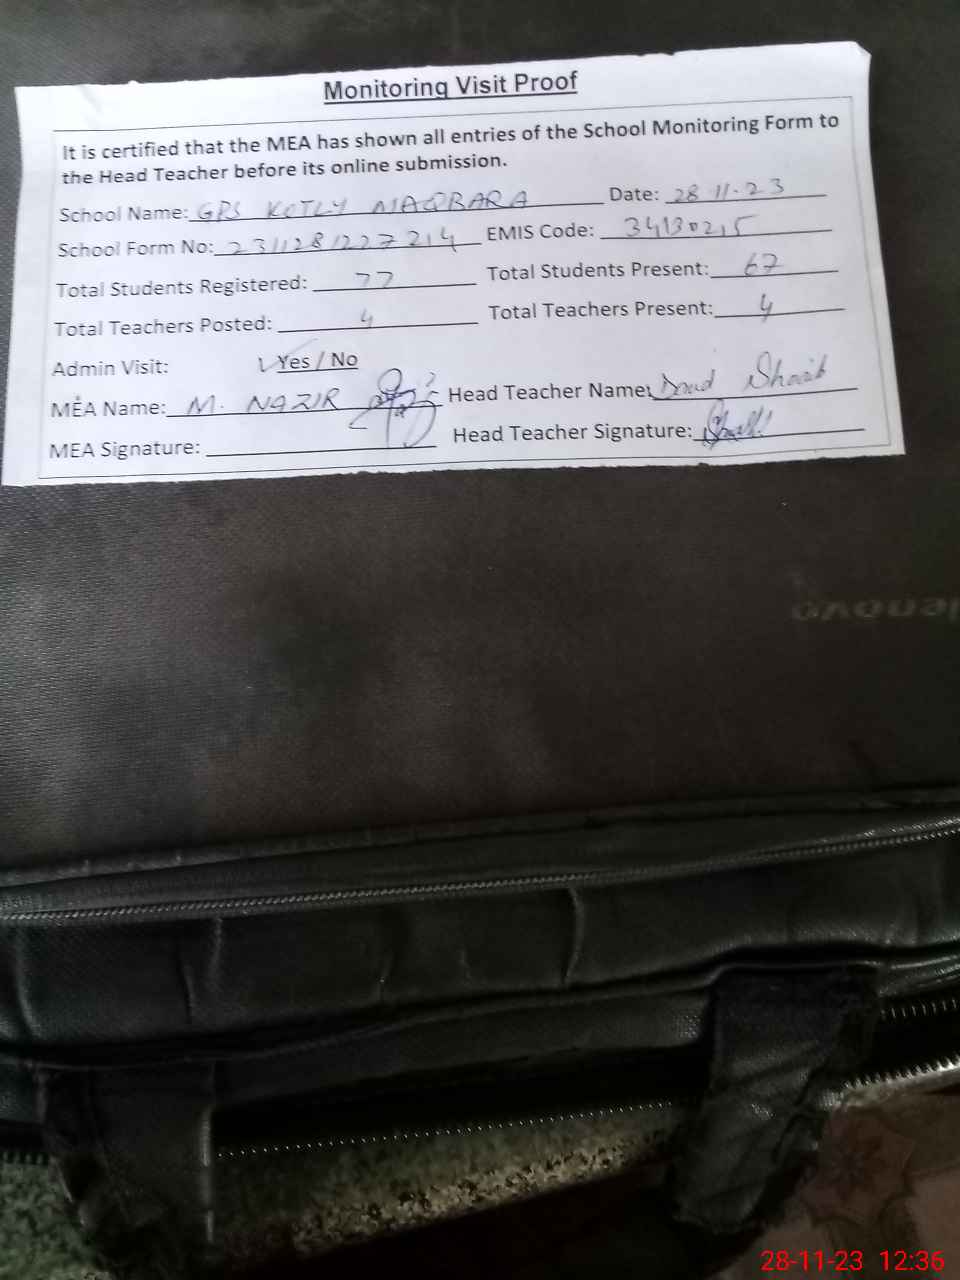 Monitoring Visit Proof
It is certified that the MEA has shown all entries of the School Monitoring Form to
the Head Teacher before its online submission.
School Name: GPS KOTLY MAQBARA Date: 28 11-23
School Form No: 2311281227214 EMIS Code: 34130215
Total Students Registered: 77 Total Students Present: 67
Total Teachers Posted: 4 Total Teachers Present: 4
Admin Visit: Yes / No
MEA Name: M. NAZIR Head Teacher Name: Shoaib
MEA Signature: Head Teacher Signature:
lenovo
28-11-23 12:36